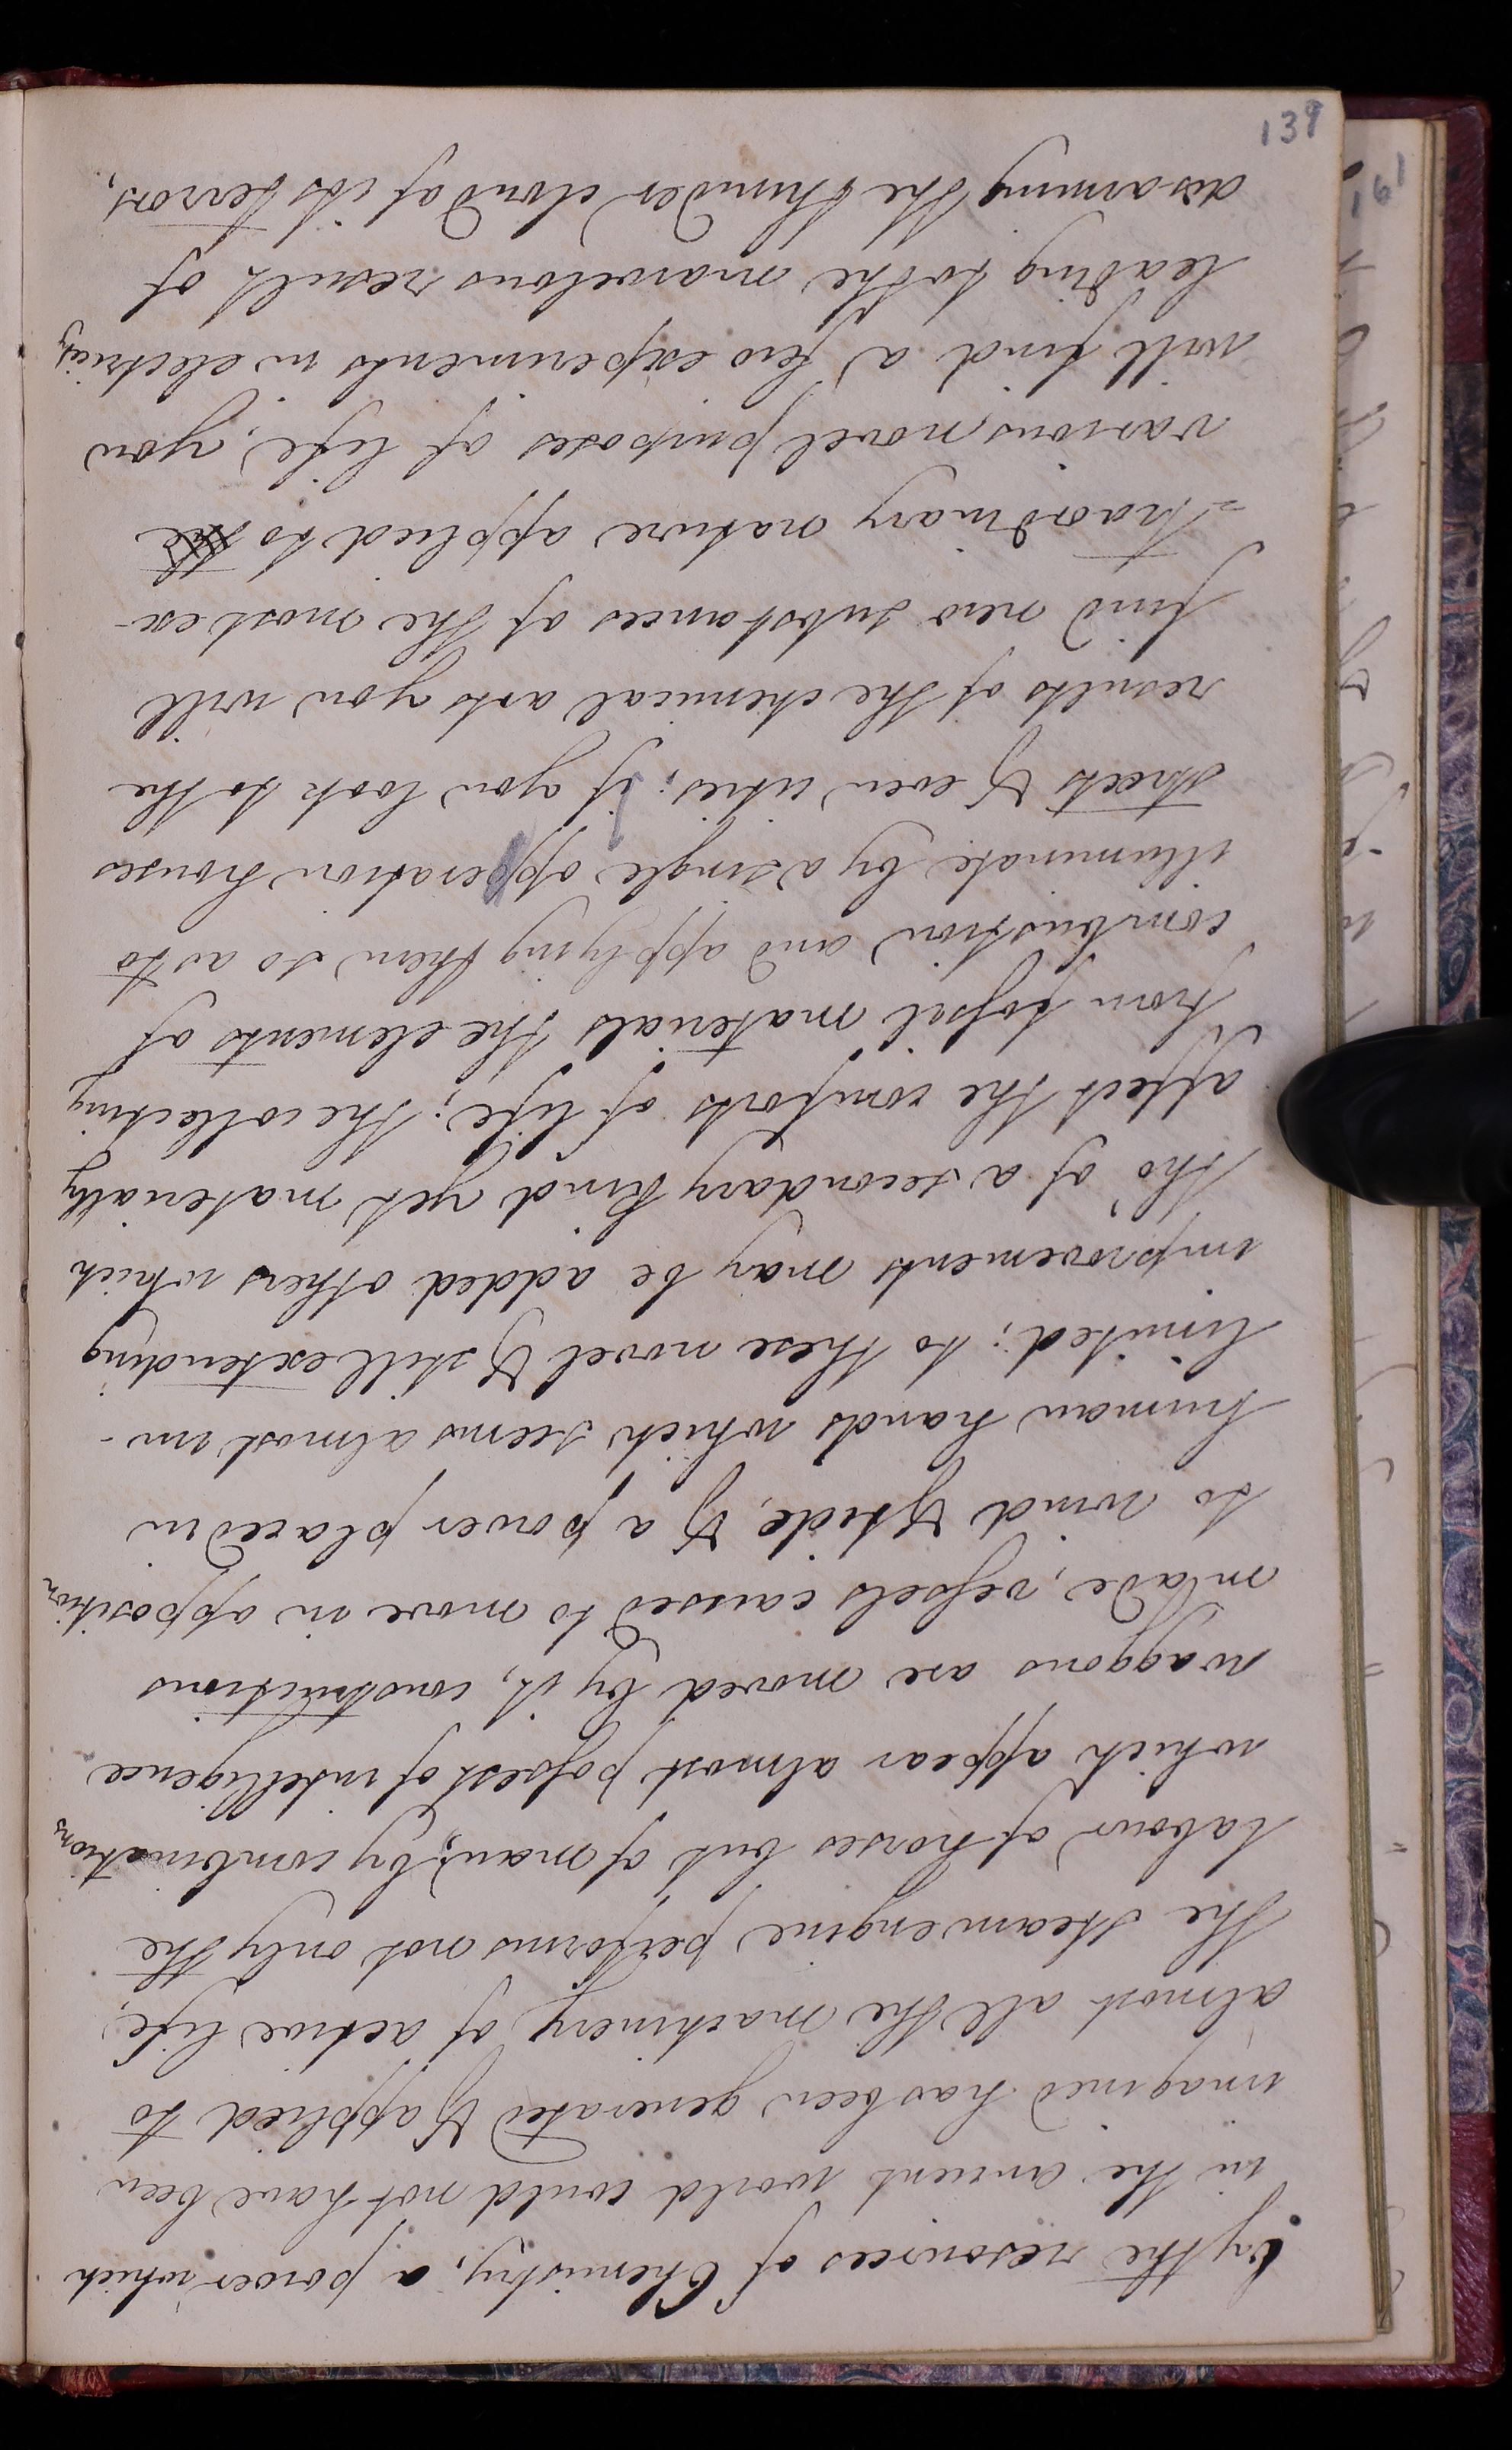 139
by the resources of Chemistry, a power which
in the ancient world could not have been
imagined has been generated & applied to
almost all the machinery of active life,
the steam engine performs not only the
labour of horses but of man, by combinations
which appear almost possest of intelligence
waggons are moved by it, constructions
made, vessels caused to move in opposition
to wind & tide, & a power placed in
human hands which seems almost un-
limited; to these novel & still extending
improvements may be added others which
tho' of a secondary kind yet materially
affect the comforts of life; the collecting
from fossil materials the elements of
combustion and applying them so as to
illuminate by a single opperation houses
streets & even cities; if you look to the
results of the chemical arts you will
find new substances of the most ex-
=traordinary nature applied to the
various novel purposes of life; you
will find a few experiments in electricity
leading to the marvelous result of
disarming the thunder cloud of its terrors,
161